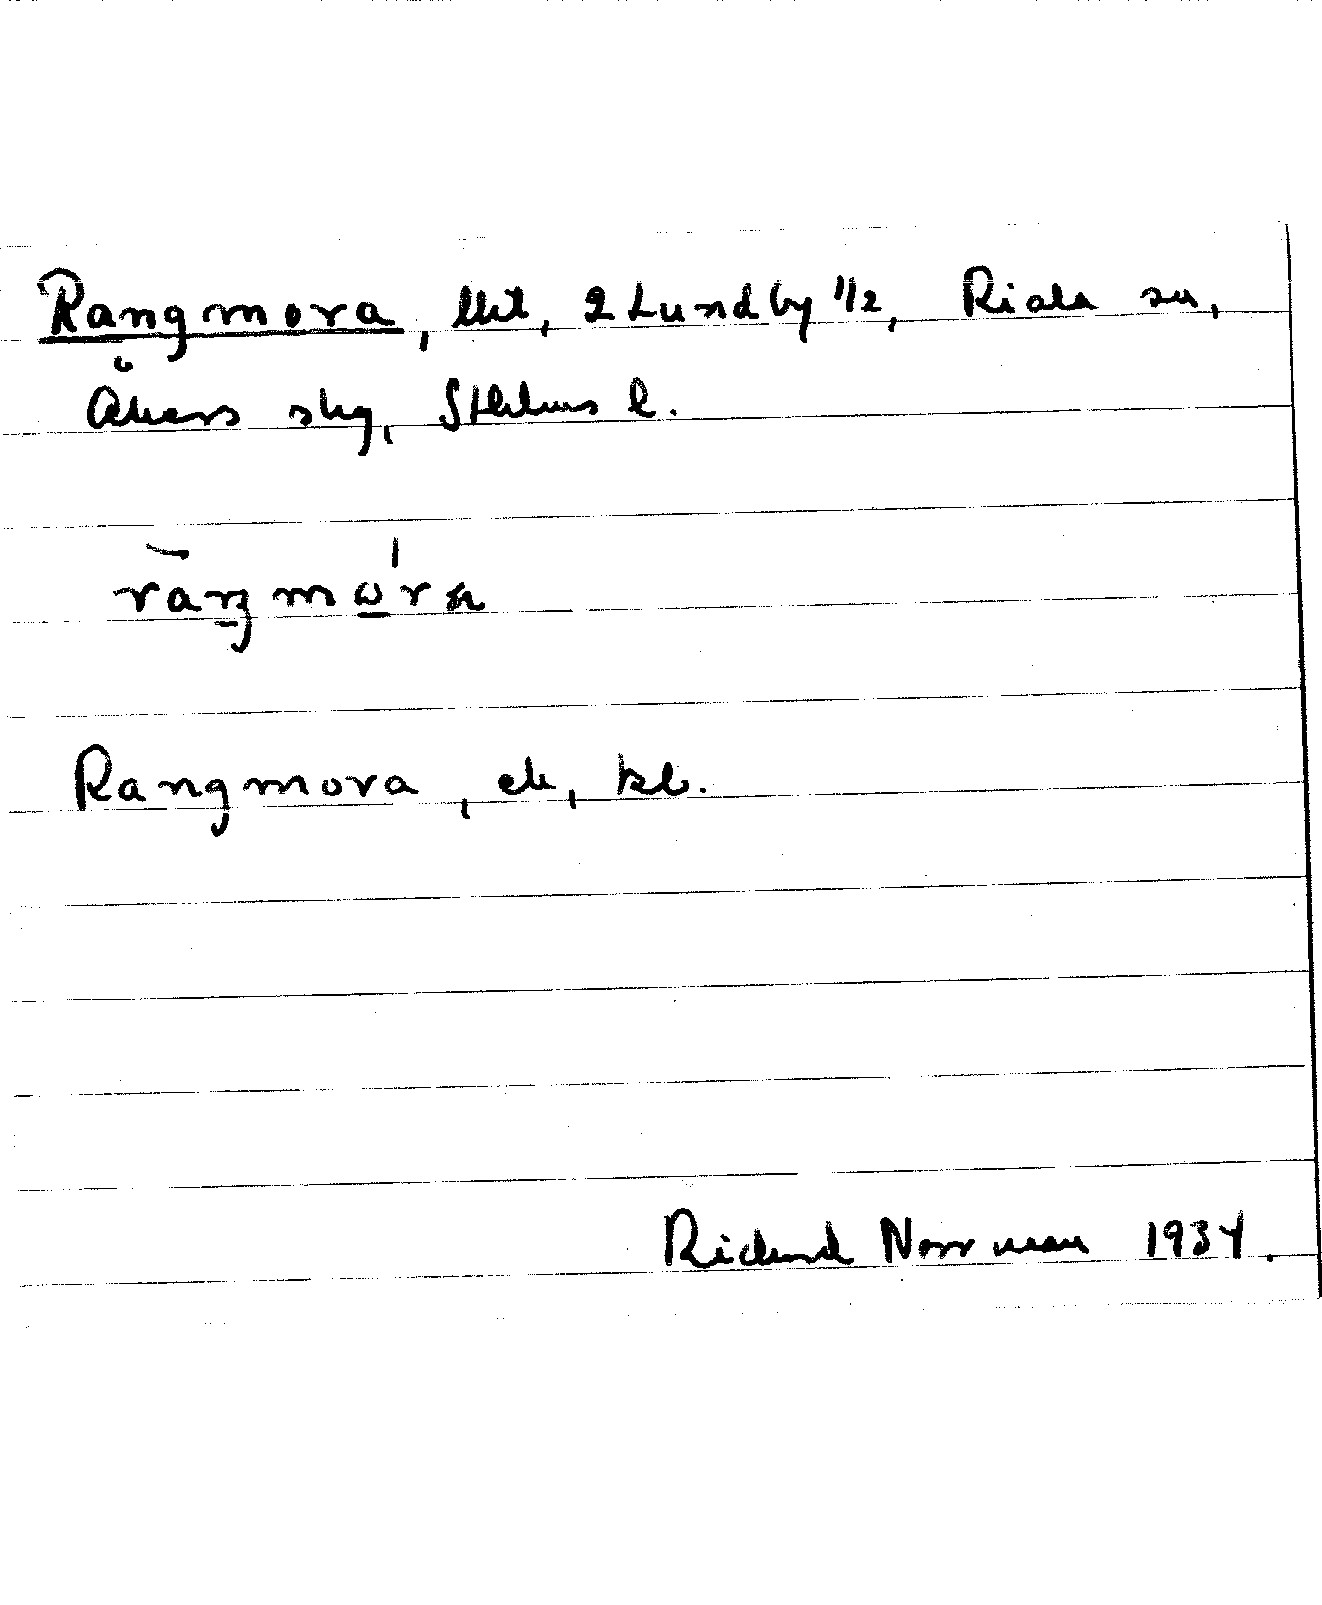 Rangmora, lht, 2 Lundby 1/2, Riala sn,
Åkers skg, Sthlms l.
Rangmora, ek, kb.
Richard Norrman 1934.